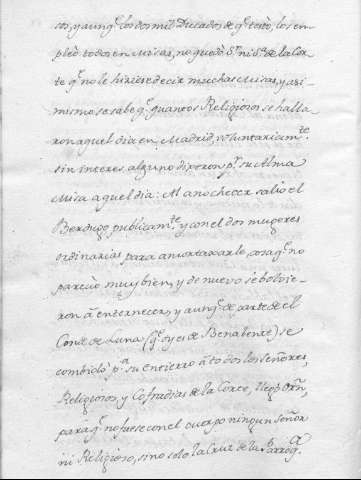 sos, y aunq. los dos mil Ducados de q. testó, los em-
pleó todos en Misas, no quedó Sr. ni Sa. de la Cor-
te q. no le hiciese decir muchas Misas, y asi-
mismo se sabe q. quantos Religiosos se halla-
ron aquel dia en Madrid, voluntariamte.
sin interes alguno dixeron pr. su Alma
Misa aquel dia: Al anochecer salió el
Berdugo publicamte. y con el dos mugeres
ordinarias para amortaxarle, cosa q. no
pareció muy bien, y de nuevo se bolvie-
ron á enternecer, y aunq. de parte de el
Conde de Luna (q. oy es de Benabente) se
combidó pa. su entierro á todos los Señores,
Religiosos y Cofradias de la Corte, llegó Orn.
para q. no fuese con el cuerpo ningun Señor
ni Religioso, sino solo la Cruz de la Parroqa.